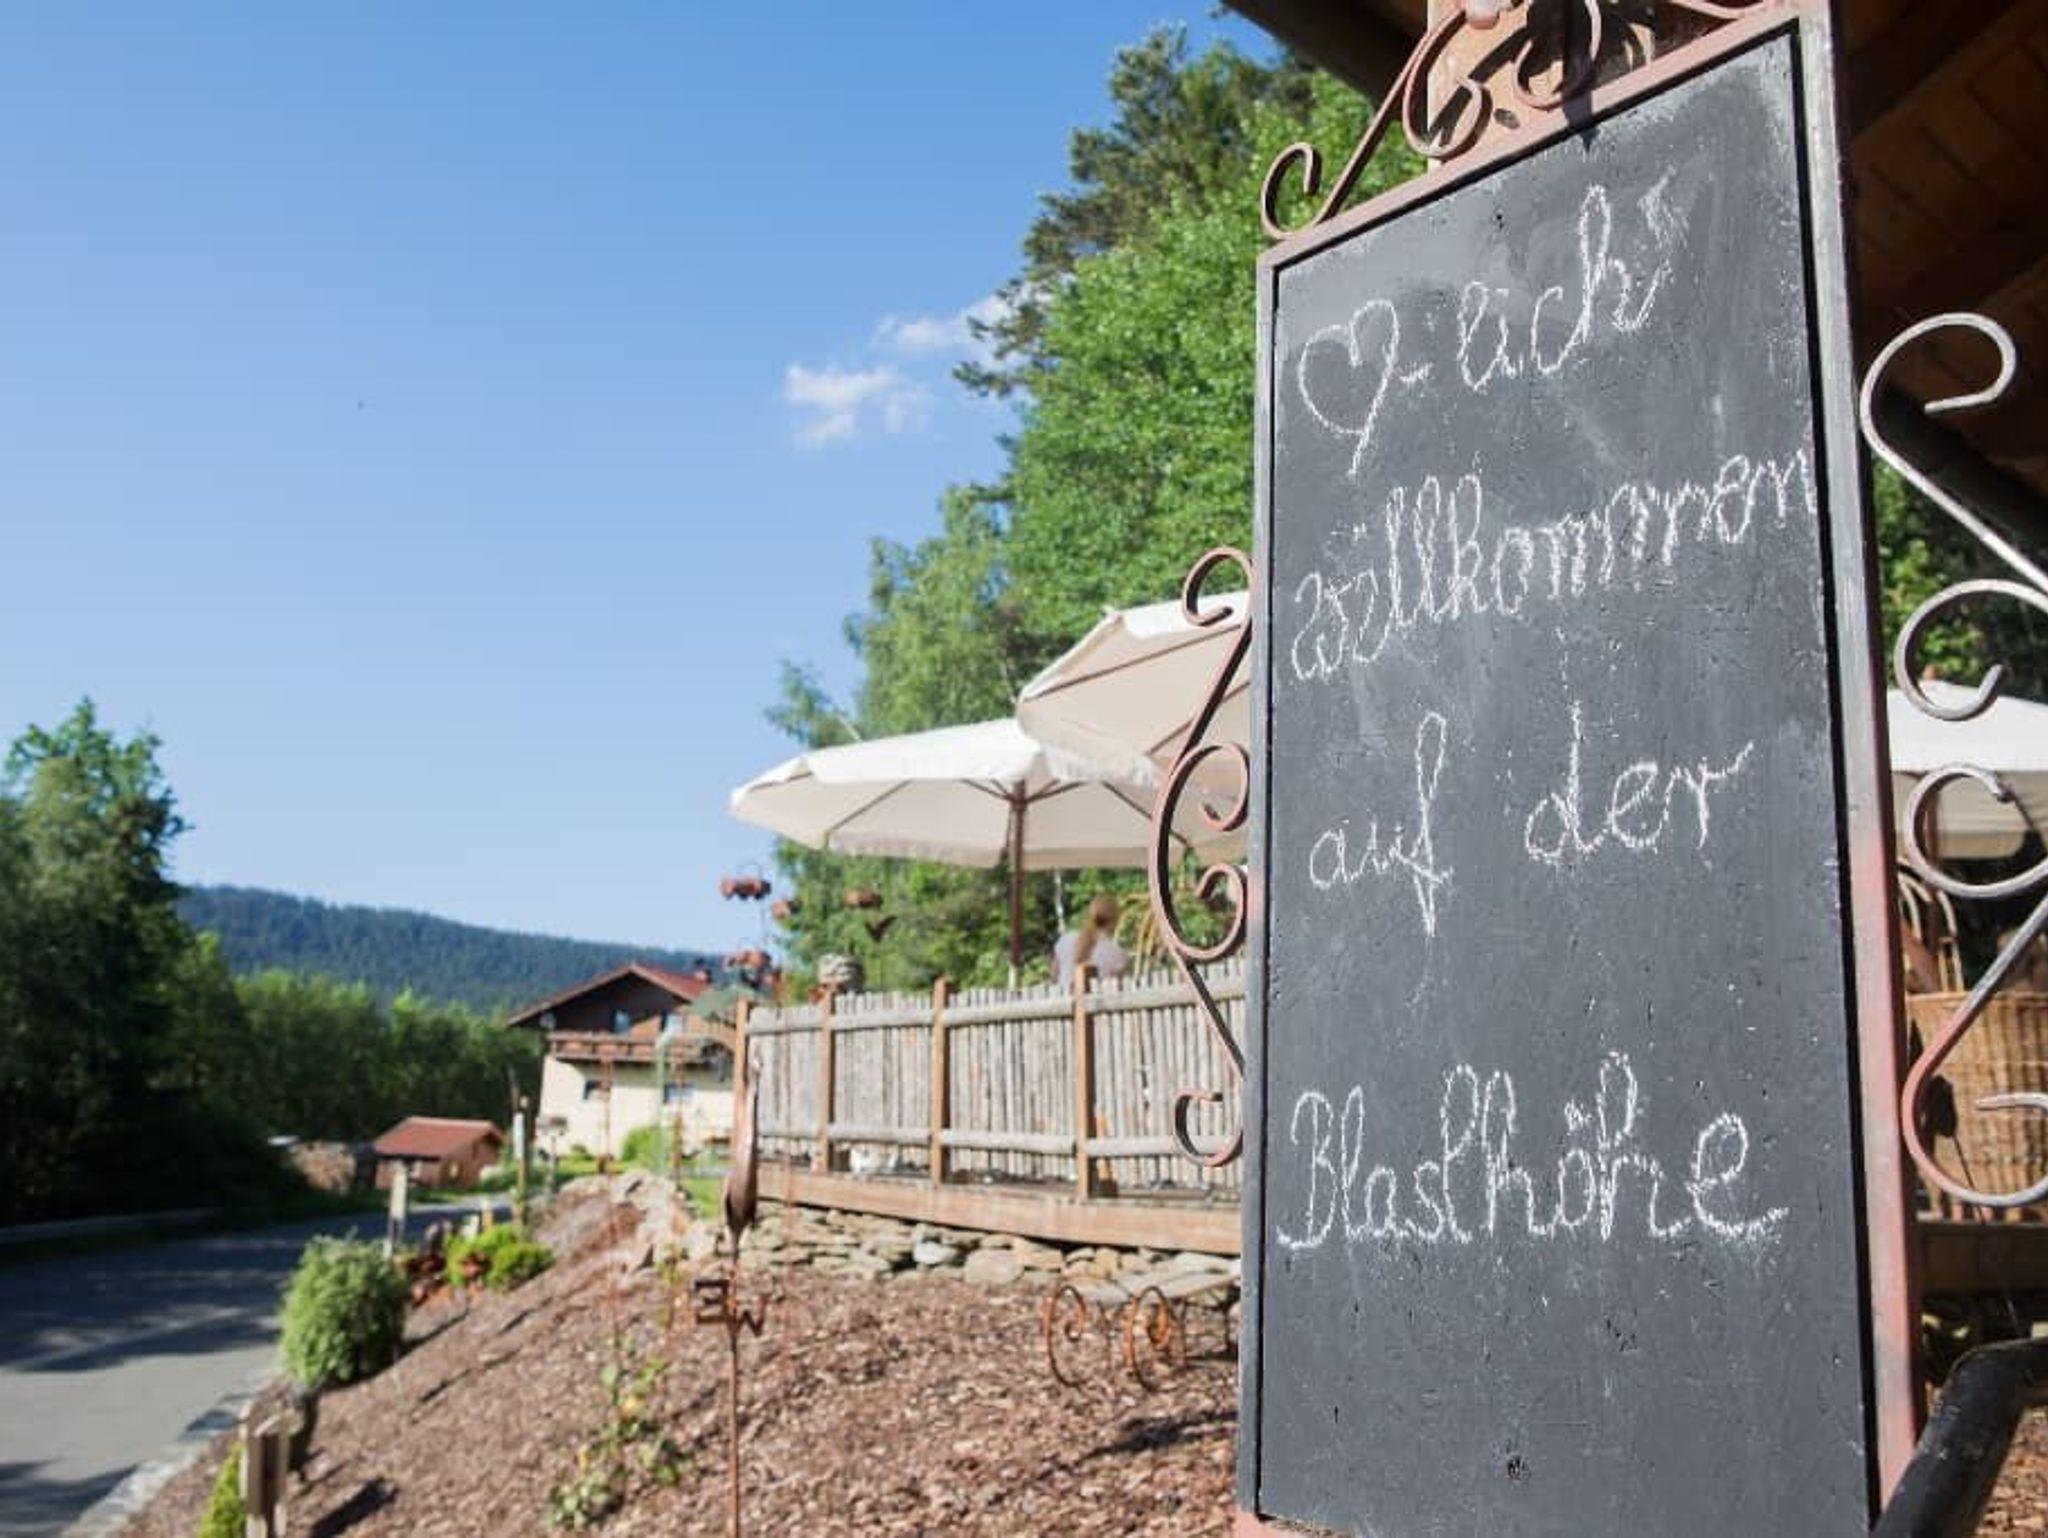 ♡-lich
willkommen
auf der
Blasthöhe